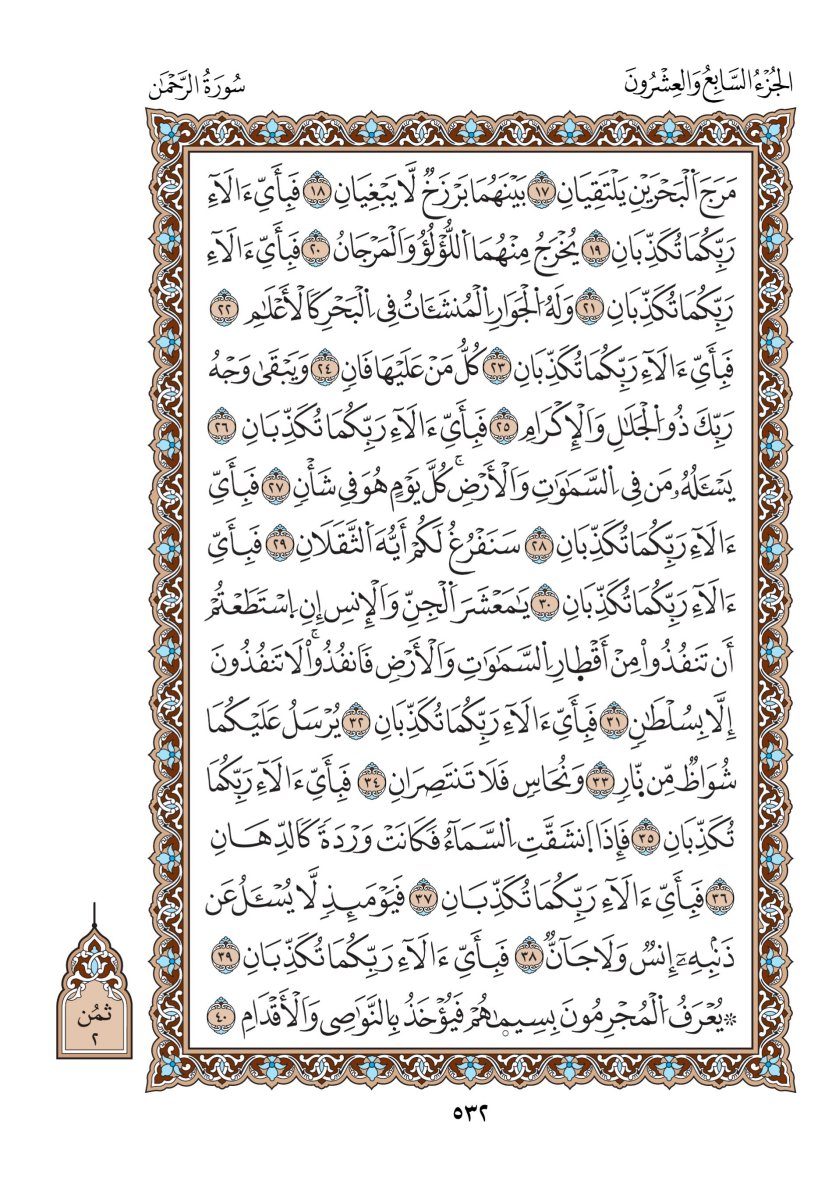 الجُزْءُ السَّابِعُ وَالعِشْرُونَ
سُورَةُ الرَّحْمَٰن
مَرَجَ اَ۬لْبَحْرَيْنِ يَلْتَقِيَانِ ١٧ بَيْنَهُمَا بَرْزَخٌ لَّا يَبْغِيَانِ ١٨ فَبِأَيِّ ءَالَآءِ
رَبِّكُمَا تُكَذِّبَانِ ١٩ يُخْرَجُ مِنْهُمَا اَ۬للُّؤْلُؤُ وَالْمَرْجَانُ ٢٠ فَبِأَيِّ ءَالَآءِ
رَبِّكُمَا تُكَذِّبَانِ ٢١ وَلَهُ اُ۬لْجَوَارِ اِ۬لْمُنشَـَٔاتُ فِي اِ۬لْبَحْرِ كَالْأَعْلَٰمِ ٢٢
فَبِأَيِّ ءَالَآءِ رَبِّكُمَا تُكَذِّبَانِ ٢٣ كُلُّ مَنْ عَلَيْهَا فَانٖ ٢٤ وَيَبْقَىٰ وَجْهُ
رَبِّكَ ذُو اُ۬لْجَلَٰلِ وَالْإِكْرَامِ ٢٥ فَبِأَيِّ ءَالَآءِ رَبِّكُمَا تُكَذِّبَانِ ٢٦
يَسْـَٔلُهُۥ مَن فِي اِ۬لسَّمَٰوَٰتِ وَالْأَرْضِۚ كُلَّ يَوْمٍ هُوَ فِي شَأْنٖ ٢٧ فَبِأَيِّ
ءَالَآءِ رَبِّكُمَا تُكَذِّبَانِ ٢٨ سَنَفْرُغُ لَكُمْ أَيُّهَ اَ۬لثَّقَلَانِ ٢٩ فَبِأَيِّ
ءَالَآءِ رَبِّكُمَا تُكَذِّبَانِ ٣٠ يَٰمَعْشَرَ اَ۬لْجِنِّ وَالْإِنسِ إِنِ اِ۪سْتَطَعْتُمْ
أَن تَنفُذُواْ مِنْ أَقْط۪ارِ اِ۬لسَّمَٰوَٰتِ وَالْأَرْضِ فَانفُذُواْۚ لَا تَنفُذُونَ
إِلَّا بِسُلْطَٰنٖ ٣١ فَبِأَيِّ ءَالَآءِ رَبِّكُمَا تُكَذِّبَانِ ٣٢ يُرْسَلُ عَلَيْكُمَا
شُوَاظٌ مِّن نّ۪ارٖ ٣٣ وَنُحَاسٖ فَلَا تَنتَصِرَانِ ٣٤ فَبِأَيِّ ءَالَآءِ رَبِّكُمَا
تُكَذِّبَانِ ٣٥ فَإِذَا اَ۪نشَقَّتِ اِ۬لسَّمَآءُ فَكَانَتْ وَرْدَةٗ كَالدِّهَانِ
٣٦ فَبِأَيِّ ءَالَآءِ رَبِّكُمَا تُكَذِّبَانِ ٣٧ فَيَوْمَئِذٖ لَّا يُسْـَٔلُ عَن
ذَنۢبِهِۦٓ إِنسٞ وَلَا جَآنّٞ ٣٨ فَبِأَيِّ ءَالَآءِ رَبِّكُمَا تُكَذِّبَانِ ٣٩
۞ يُعْرَفُ اُ۬لْمُجْرِمُونَ بِسِيمٰ۪هُمْ فَيُؤْخَذُ بِالنَّوَٰصِي وَالْأَقْدَامِ ٤٠
ثمُن
٢
٥٣٢